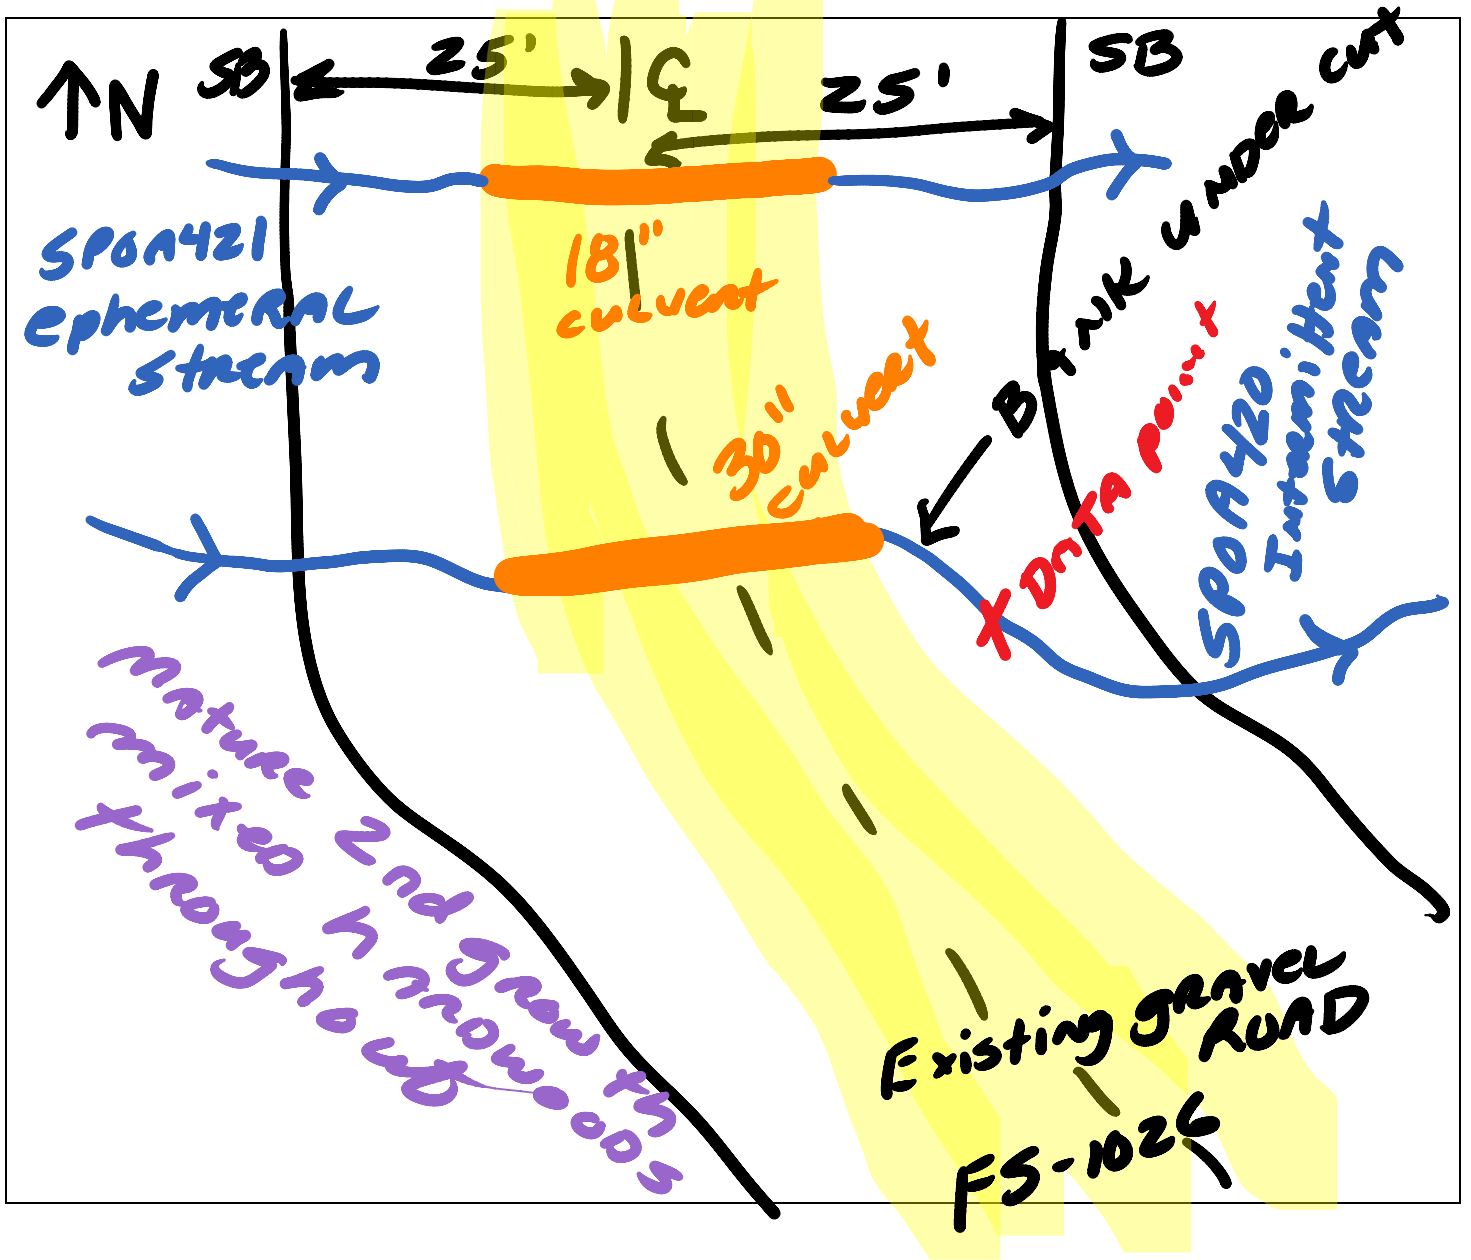 N
SB
25'
CL
25'
SB
SPOA421
ephemeral
stream
18"
culvert
30"
culvert
Bank under cut
X Data point
SPOA420
Intermittent
Stream
mature 2nd growth
mixed hardwoods
throughout
Existing gravel
Road
FS-1026